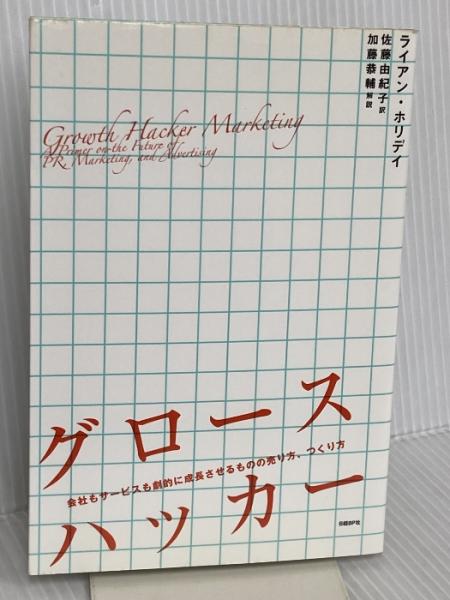 ライアン・ホリデイ
佐藤由紀子 訳
加藤恭輔 解説
Growth Hacker Marketing
A Primer on the Future of
PR, Marketing, and Advertising
グロース
会社もサービスも劇的に成長させるものの売り方、つくり方
ハッカー
日経BP社